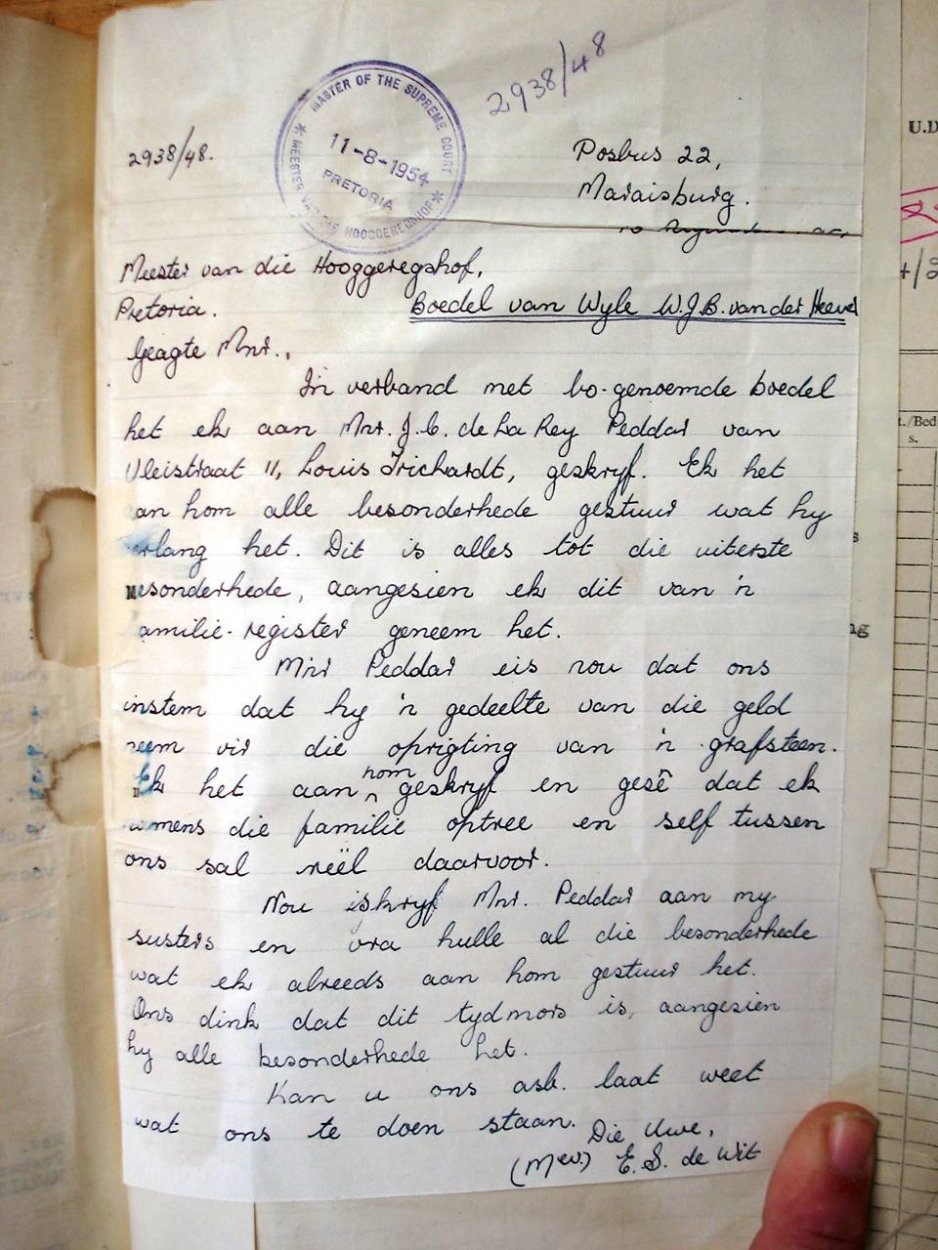 2938/48
MASTER OF THE SUPREME COURT
11-8-1954
PRETORIA
MEESTER VAN DIE HOOGGEREGSHOF
2938/48.
Posbus 22,
Maraisburg.
Meester van die Hooggeregshof,
Pretoria.
Boedel van Wyle W.J.B. van der Heever
Geagte Mnr.,
In verband met bo-genoemde boedel
het ek aan Mnr. J.C. de La Rey Peddar van
Vleistraat 11, Louis Trichardt, geskryf. Ek het
aan hom alle besonderhede gestuur wat hy
verlang het. Dit is alles tot die uiterste
besonderhede, aangesien ek dit van 'n
amilie-register geneem het.
Mnr Peddar eis nou dat ons
instem dat hy 'n gedeelte van die geld
neem vir die oprigting van 'n grafsteen.
Ek het aan hom geskryf en gesê dat ek
namens die familie optree en self tussen
ons sal reël daarvoor.
Nou skryf Mnr. Peddar aan my
susters en vra hulle al die besonderhede
wat ek alreeds aan hom gestuur het.
Ons dink dat dit tydmors is, aangesien
hy alle besonderhede het.
Kan u ons asb. laat weet
wat ons te doen staan.
Die Uwe,
(Mev.) E.S. de Wit
U.D
t./Bed
s.